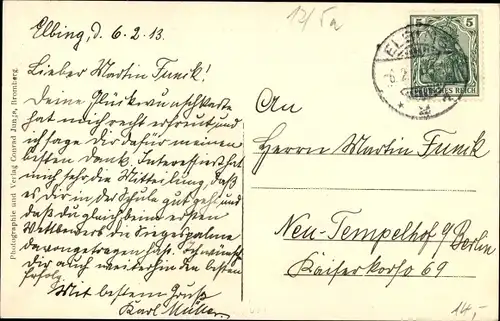 Elbing, d. 6.2.13.
Lieber Martin Funck!
Deine Glückwunschkarte
hat mich recht erfreut und ich
sage Dir dafür meinen
besten Dank. Interessiert hat
mich sehr die Mitteilung, daß
es dir in der Schule gut geht und
daß du gleich beim ersten
Wettbewerb die Siegespalme
davongetragen hast. Ich wünsche
Dir auch weiterhin den besten
Erfolg.
Mit bestem Gruß
Karl Müller.
Photographie und Verlag Conrad Junga, Bromberg.
12/5a
5 5
DEUTSCHES REICH
An
Herrn Martin Funck
Neu-Tempelhof b/Berlin
Kaiserkorso 69
14,-